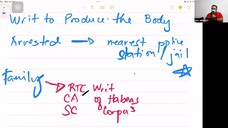 Writ to Produce the Body
Arrested → nearest police
station / jail
Family
→ RTC Writ
CA of Habeas
SC Corpus